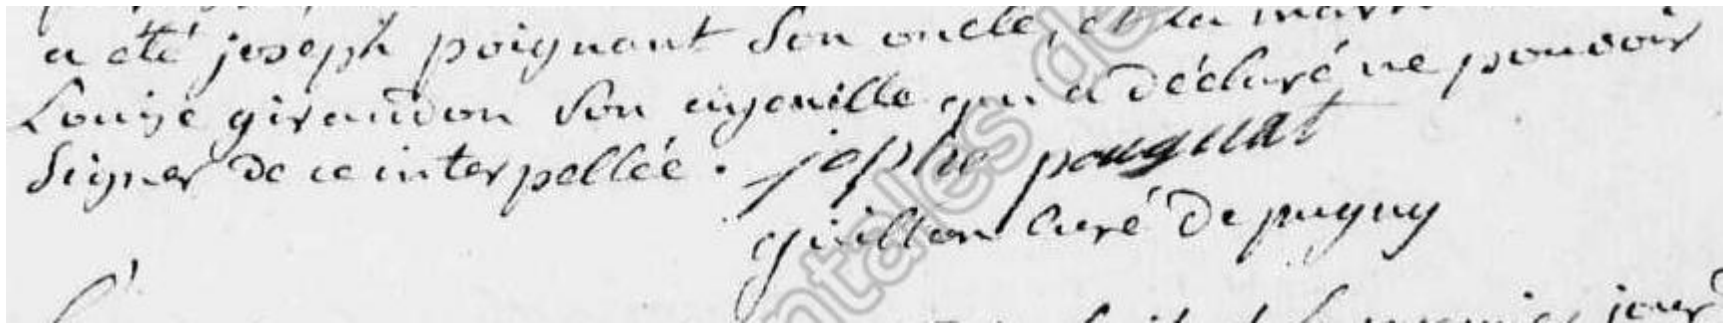 a été joseph poignant son oncle, et la marr
Louise giraudon son ayeuille qui a déclaré ne pouvoir
signer de ce interpellée. josephe pougnat
guillon curé de pugny
premier jour